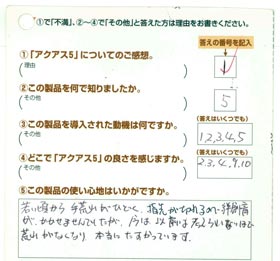 ①で「不満」、②～④で「その他」と答えた方は理由をお書きください。
答えの番号を記入
①「アクアス5」についてのご感想。
(理由
1
②この製品を何で知りましたか。
(その他
5
③この製品を導入された動機は何ですか。
(答えはいくつでも)
(その他
1,2,3,4,5
④どこで「アクアス5」の良さを感じますか。
(答えはいくつでも)
(その他
2,3,4,9,10
⑤この製品の使い心地はいかがですか。
若い頃から手荒れがひどく、指先がひびわれるので絆創膏
が、かかせませんでしたが、今は以前は考えられないほど
荒れがなくなり本当にたすかっています。